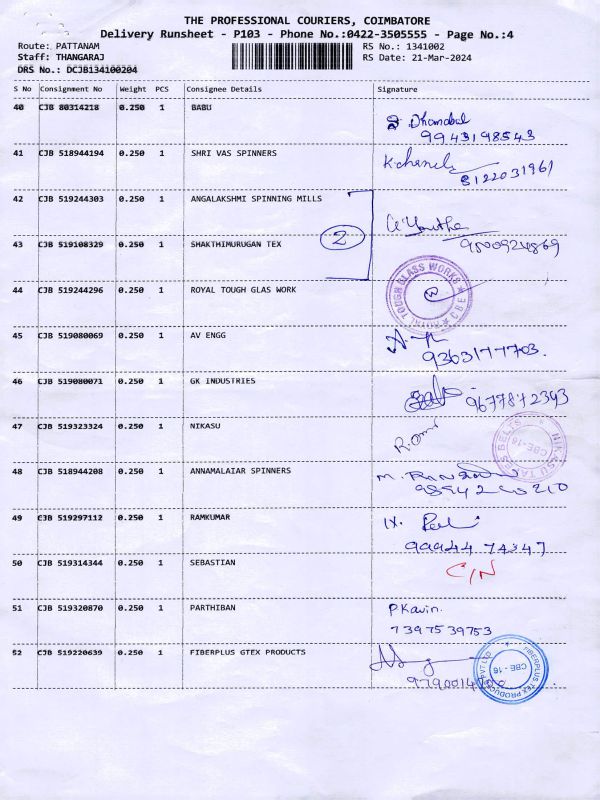 THE PROFESSIONAL COURIERS, COIMBATORE
Delivery Runsheet - P103 - Phone No.:0422-3505555 - Page No.:4
Route: PATTANAM
RS No.: 1341002
Staff: THANGARAJ
RS Date: 21-Mar-2024
DRS No.: DCJB134100204
S No Consignment No Weight PCS Consignee Details Signature
40 CJB 80314218 0.250 1 BABU
9943198543
41 CJB 518944194 0.250 1 SHRI VAS SPINNERS
8122031961
42 CJB 519244303 0.250 1 ANGALAKSHMI SPINNING MILLS
2
43 CJB 519108329 0.250 1 SHAKTHIMURUGAN TEX
9500924869
44 CJB 519244296 0.250 1 ROYAL TOUGH GLAS WORK
ROYAL TOUGH GLASS WORKS ★ CBE ★
45 CJB 519080069 0.250 1 AV ENGG
9363177703.
46 CJB 519080071 0.250 1 GK INDUSTRIES
9677872393
47 CJB 519323324 0.250 1 NIKASU
NIKASU TAPS BELTS
CBE-16
48 CJB 518944208 0.250 1 ANNAMALAIAR SPINNERS
49 CJB 519297112 0.250 1 RAMKUMAR
99944 74347
50 CJB 519314344 0.250 1 SEBASTIAN
C/N
51 CJB 519320870 0.250 1 PARTHIBAN
P Kavin.
7397539753
52 CJB 519220639 0.250 1 FIBERPLUS GTEX PRODUCTS
FIBERPLUS TEX PRODUCTS PVT LTD
CBE - 16